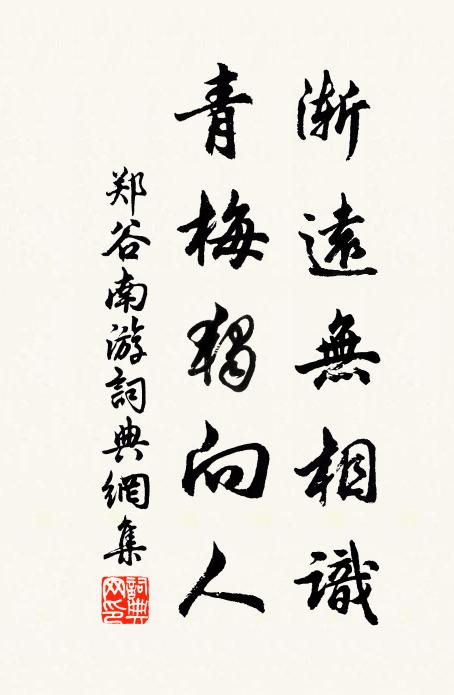 漸遠無相識
青梅獨向人
郑谷南游詞典網集
詞典網印